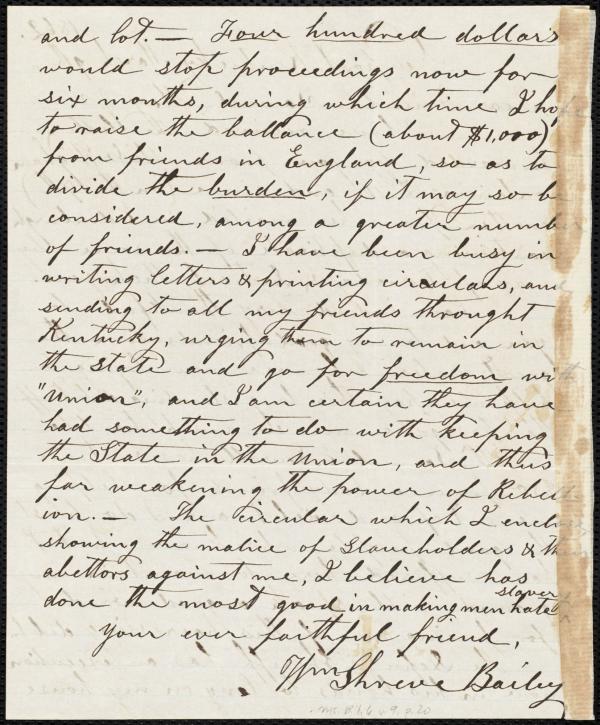 and lot. — Four hundred dollars
would stop proceedings now for
six months, during which time I hope
to raise the ballance (about $1,000)
from friends in England, so as to
divide the burden, if it may so be
considered, among a greater number
of friends. — I have been busy in
writing letters & printing circulars, and
sending to all my friends throught
Kentucky, urging them to remain in
the state and go for freedom with
"Union", and I am certain they have
had something to do with keeping
the State in the Union, and thus
far weakening the power of Rebell-
ion. — The circular which I enclose
showing the malice of Slaveholders & their
abettors against me, I believe has
done the most good in making men hate slavery
Your ever faithful friend,
Wm Shreve Bailey